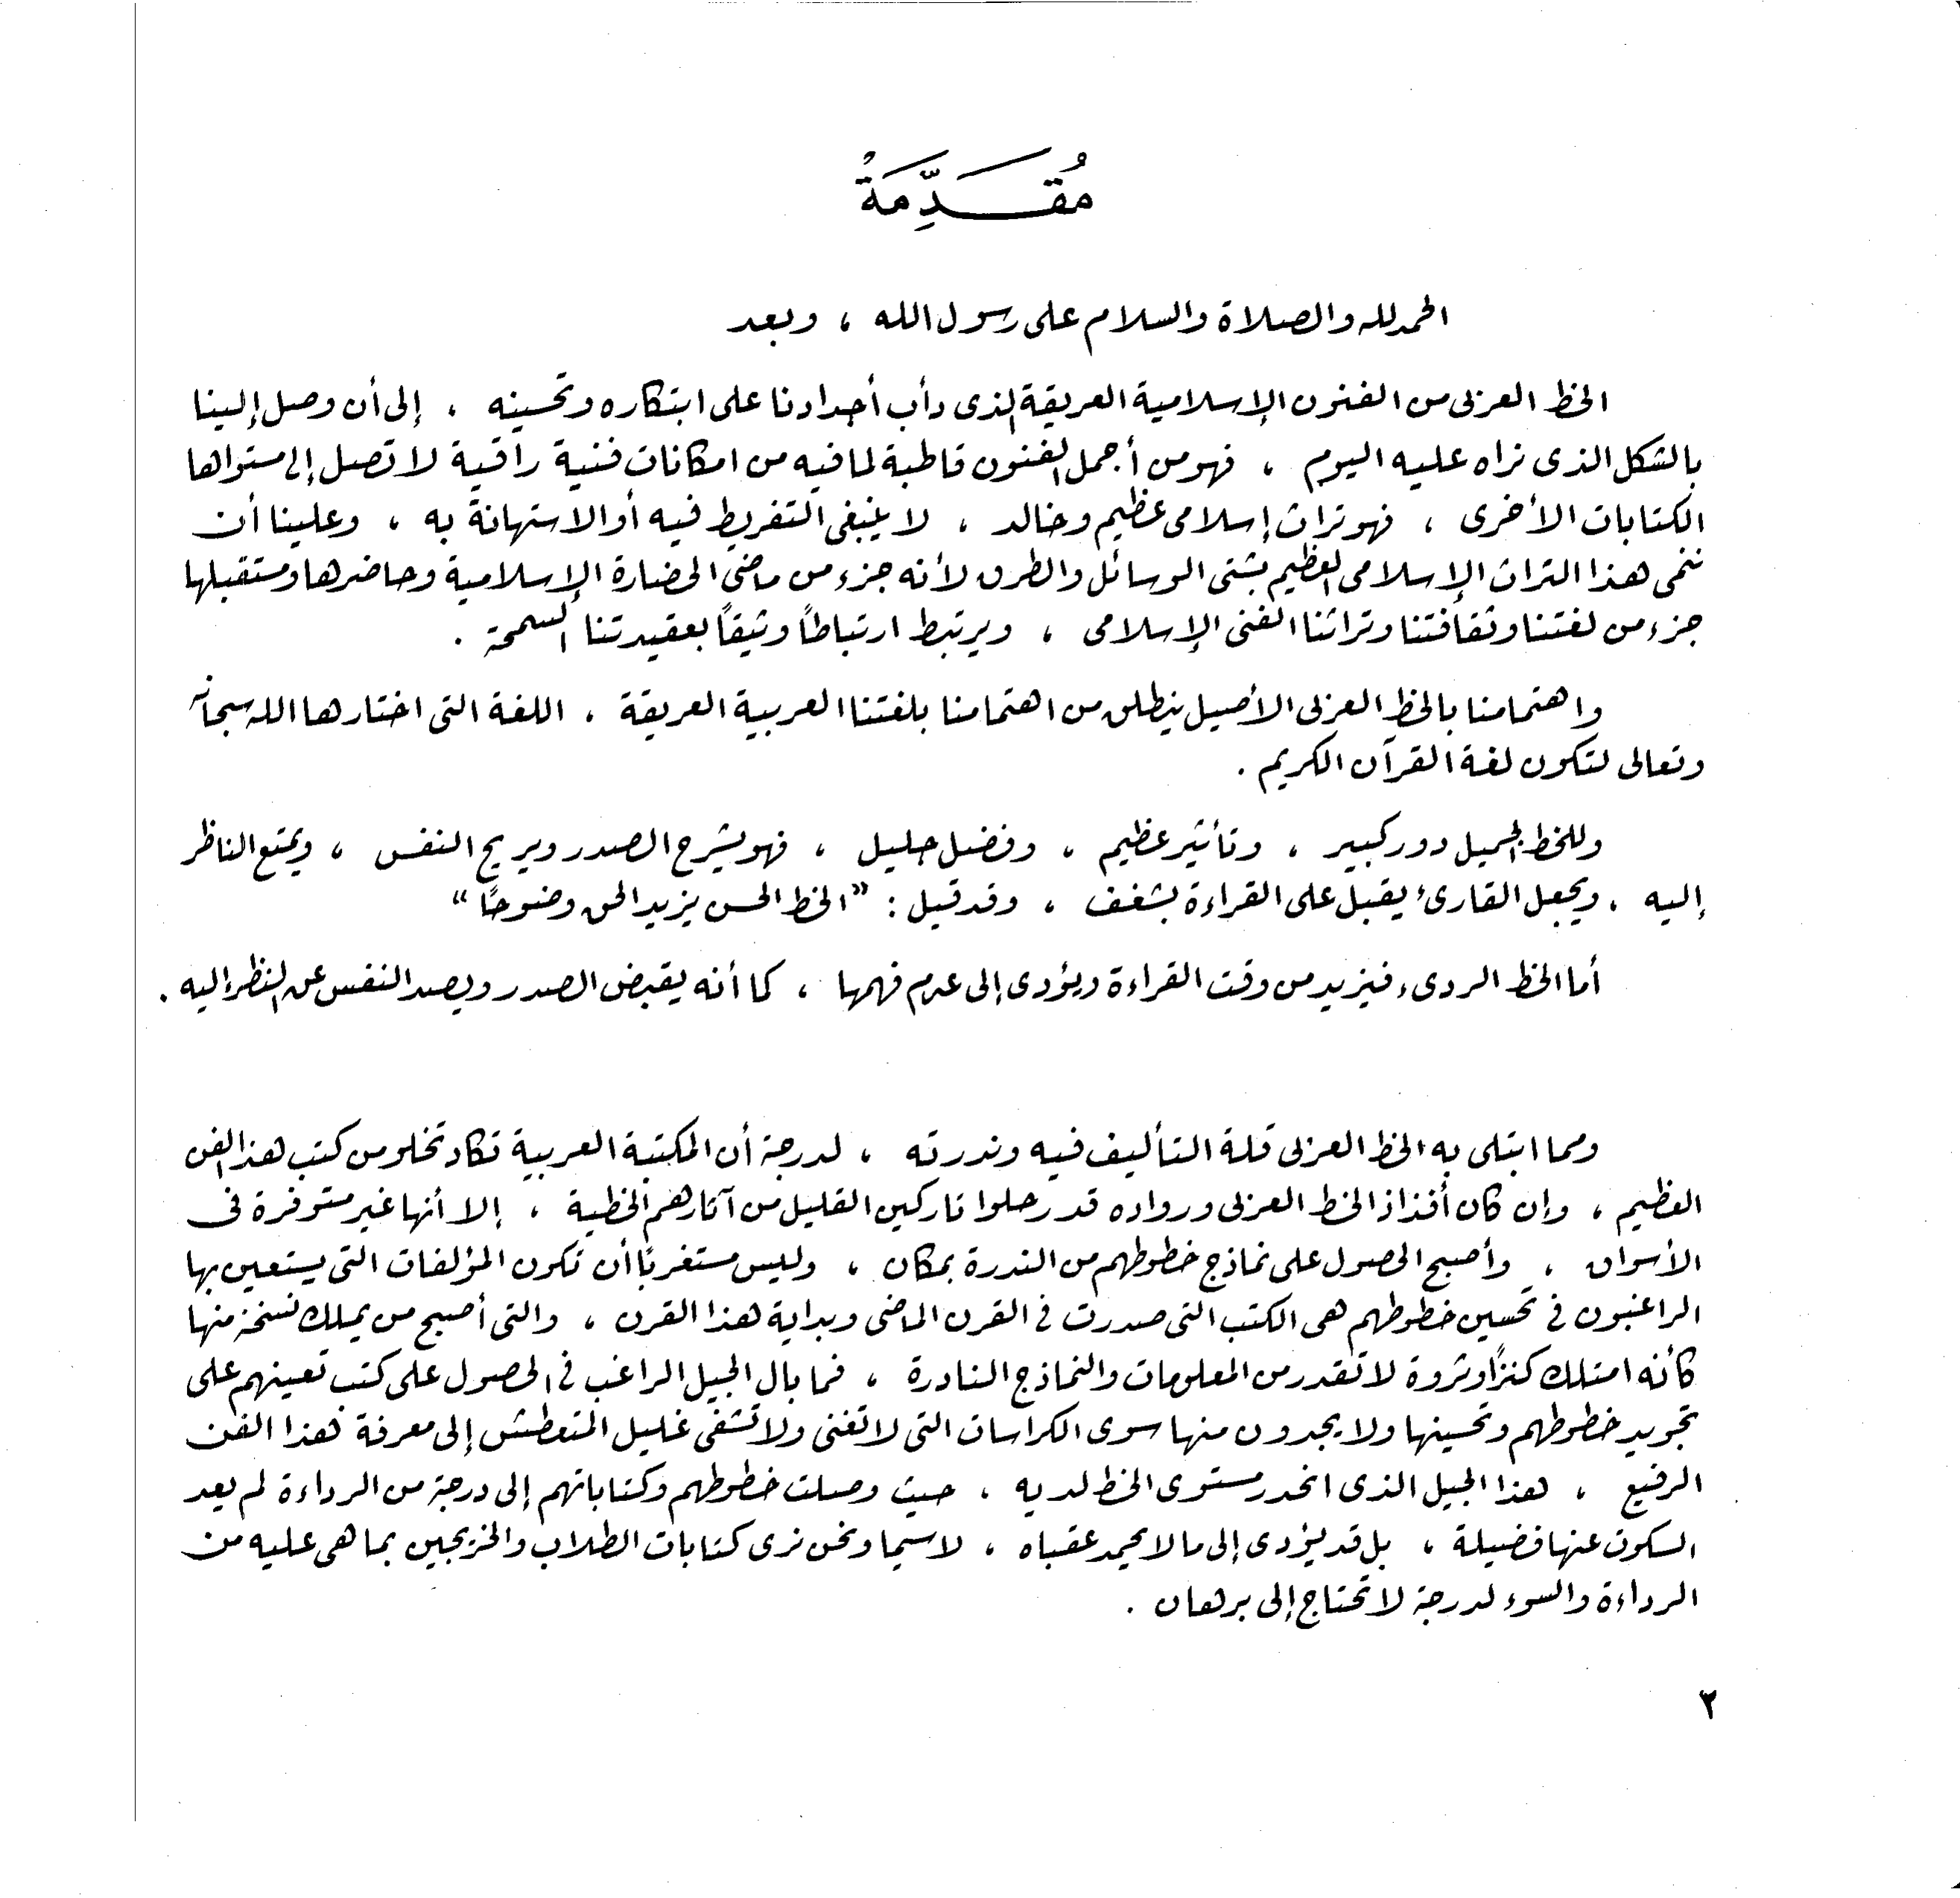 مُقَدِّمَةً
الحمد لله والصلاة والسلام على رسول الله ، وبعد
الخط العربى من الفنون الإسلامية العريقة الذى دأب أجدادنا على ابتكاره وتحسينه ، إلى أن وصل إلينا
بالشكل الذى نراه عليه اليوم ، فهو من أجمل الفنون قاطبة لما فيه من امكانات فنية راقية لا تصل إلى مستواها
الكتابات الأخرى ، فهو تراث إسلامى عظيم وخالد ، لا ينبغى التفريط فيه أو الاستهانة به ، وعلينا أن
ننمى هذا التراث الإسلامى العظيم بشتى الوسائل والطرق لأنه جزء من ماضى الحضارة الإسلامية وحاضرها ومستقبلها
جزء من لغتنا وثقافتنا وتراثنا الفنى الإسلامى ، ويرتبط ارتباطاً وثيقاً بعقيدتنا السمحة .
واهتمامنا بالخط العربى الأصيل ينطلق من اهتمامنا بلغتنا العربية العريقة ، اللغة التى اختارها الله سبحانه
وتعالى لتكون لغة القرآن الكريم .
وللخط الجميل دور كبير ، وتأثير عظيم ، وفضل جليل ، فهو يشرح الصدر ويريح النفس ، ويمتع الناظر
إليه ، ويجعل القارئ يقبل على القراءة بشغف ، وقد قيل : "الخط الحسن يزيد الحق وضوحًا"
أما الخط الردىء فيزيد من وقت القراءة ويؤدى إلى عدم فهمها ، كما أنه يقبض الصدر ويصد النفس عن النظر إليه .
ومما ابتلى به الخط العربى قلة التأليف فيه وندرته ، لدرجة أن المكتبة العربية تكاد تخلو من كتب هذا الفن
العظيم ، وإن كان أفذاذ الخط العربى ورواده قد رحلوا تاركين القليل من آثارهم الخطية ، إلا أنها غير متوفرة فى
الأسواق ، وأصبح الحصول على نماذج خطوطهم من الندرة بمكان ، وليس مستغربًا أن تكون المؤلفات التى يستعين بها
الراغبون فى تحسين خطوطهم هى الكتب التى صدرت فى القرن الماضى وبداية هذا القرن ، والتى أصبح من يملك نسخة منها
كأنه امتلك كنزًا وثروة لا تقدر من المعلومات والنماذج النادرة ، فما بال الجيل الراغب فى الحصول على كتب تعينهم على
تجويد خطوطهم وتحسينها ولا يجدون منها سوى الكراسات التى لا تغنى ولا تشفى غليل المتعطش إلى معرفة هذا الفن
الرفيع ، هذا الجيل الذى انحدر مستوى الخط لديه ، حيث وصلت خطوطهم وكتاباتهم إلى درجة من الرداءة لم يعد
السكوت عنها فضيلة ، بل قد يؤدى إلى ما لا يحمد عقباه ، لاسيما ونحن نرى كتابات الطلاب والخريجين بما هى عليه من
الرداءة والسوء لدرجة لا تحتاج إلى برهان .
٣